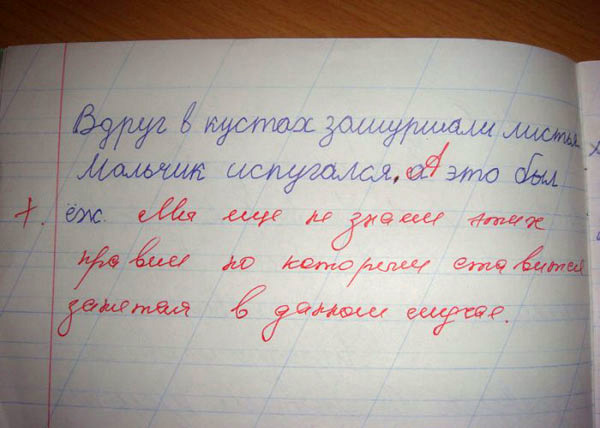 Вдруг в кустах зашуршали листья
Мальчик испугался, а А это был
+. ёж. Мы еще не знаем этих
правил по которым ставится
запятая в данном случае.